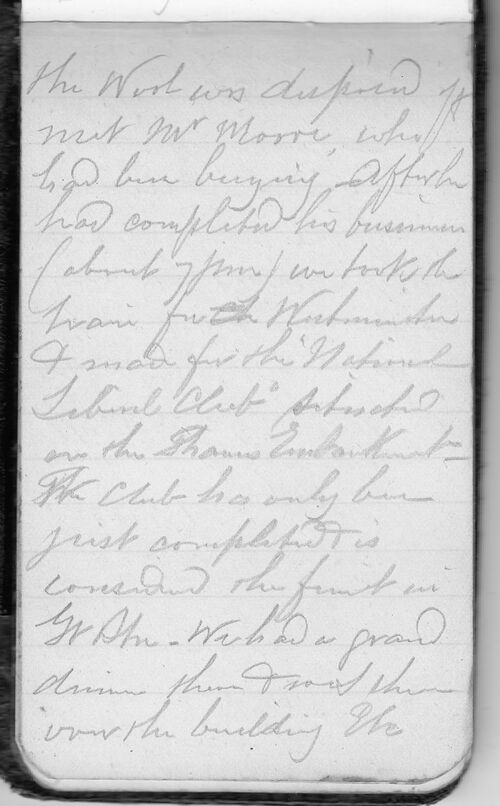 the Wool was disposed of
met Mr Moore who
had been buying. After he
had completed his business
(about 7 pm) we took the
train for Westminster
& made for the "National
Liberal Club" situated
on the Thames Embankment
The Club has only been
just completed & is
considered the finest in
Gt Btn - We had a grand
dinner there & went then
over the building Etc